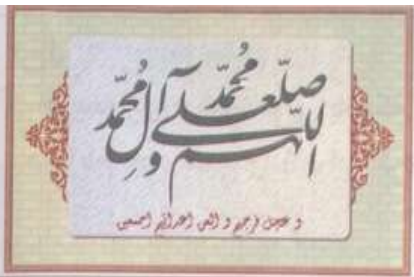 اللهم صل علی محمد وآل محمد
و عجل فرجهم و العن اعدائهم اجمعین